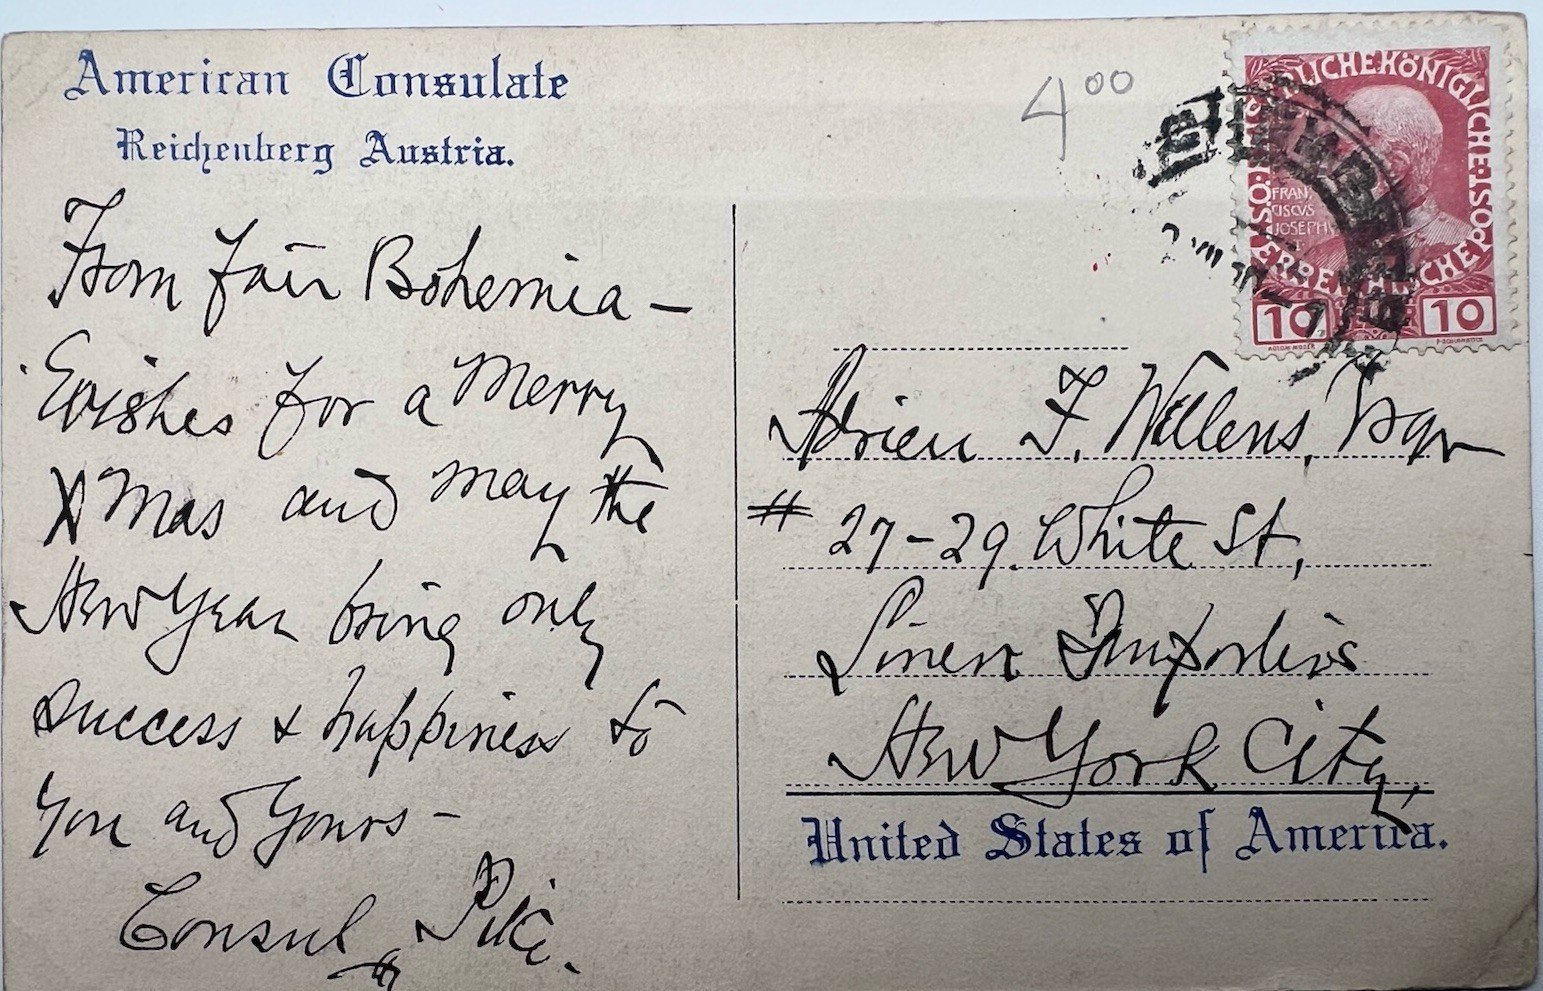 American Consulate
Reichenberg Austria.
From fair Bohemia –
Wishes for a Merry
XMas and may the
New Year bring only
success & happiness to
you and yours –
Consul Pike.
4 00
KAISERLICHE KÖNIGLICHE ÖSTERREICHISCHE POST
FRAN
CISCVS
JOSEPH I
10 HELLER 10
Adrien F. Willens, Esqr
# 27-29. White St,
Linen Importers
New York City,
United States of America.